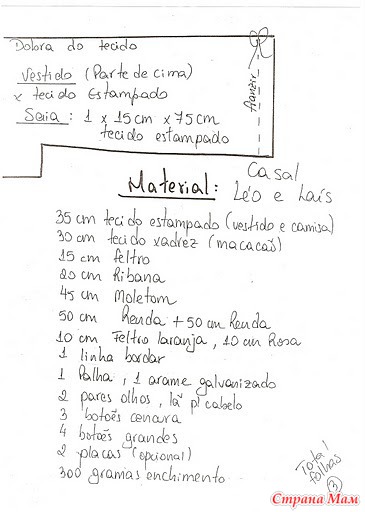 Dobra do tecido
Vestido (Parte de cima)
x tecido Estampado
Saia : 1 x 15 cm x 75 cm
tecido estampado
franzir
Material:
Casal
Léo e Laís
35 cm tecido estampado (vestido e camisa)
30 cm tecido xadrez (macacão)
15 cm feltro
20 cm Ribana
45 cm Moletom
50 cm Renda + 50 cm Renda
10 cm Feltro laranja, 10 cm Rosa
1 linha bordar
1 Palha, 1 arame galvanizado
2 pares olhos, lã p/ cabelo
3 botões cenoura
4 botões grandes
2 placas (opcional)
300 gramas enchimento
Total
folhas
3
Страна Мам